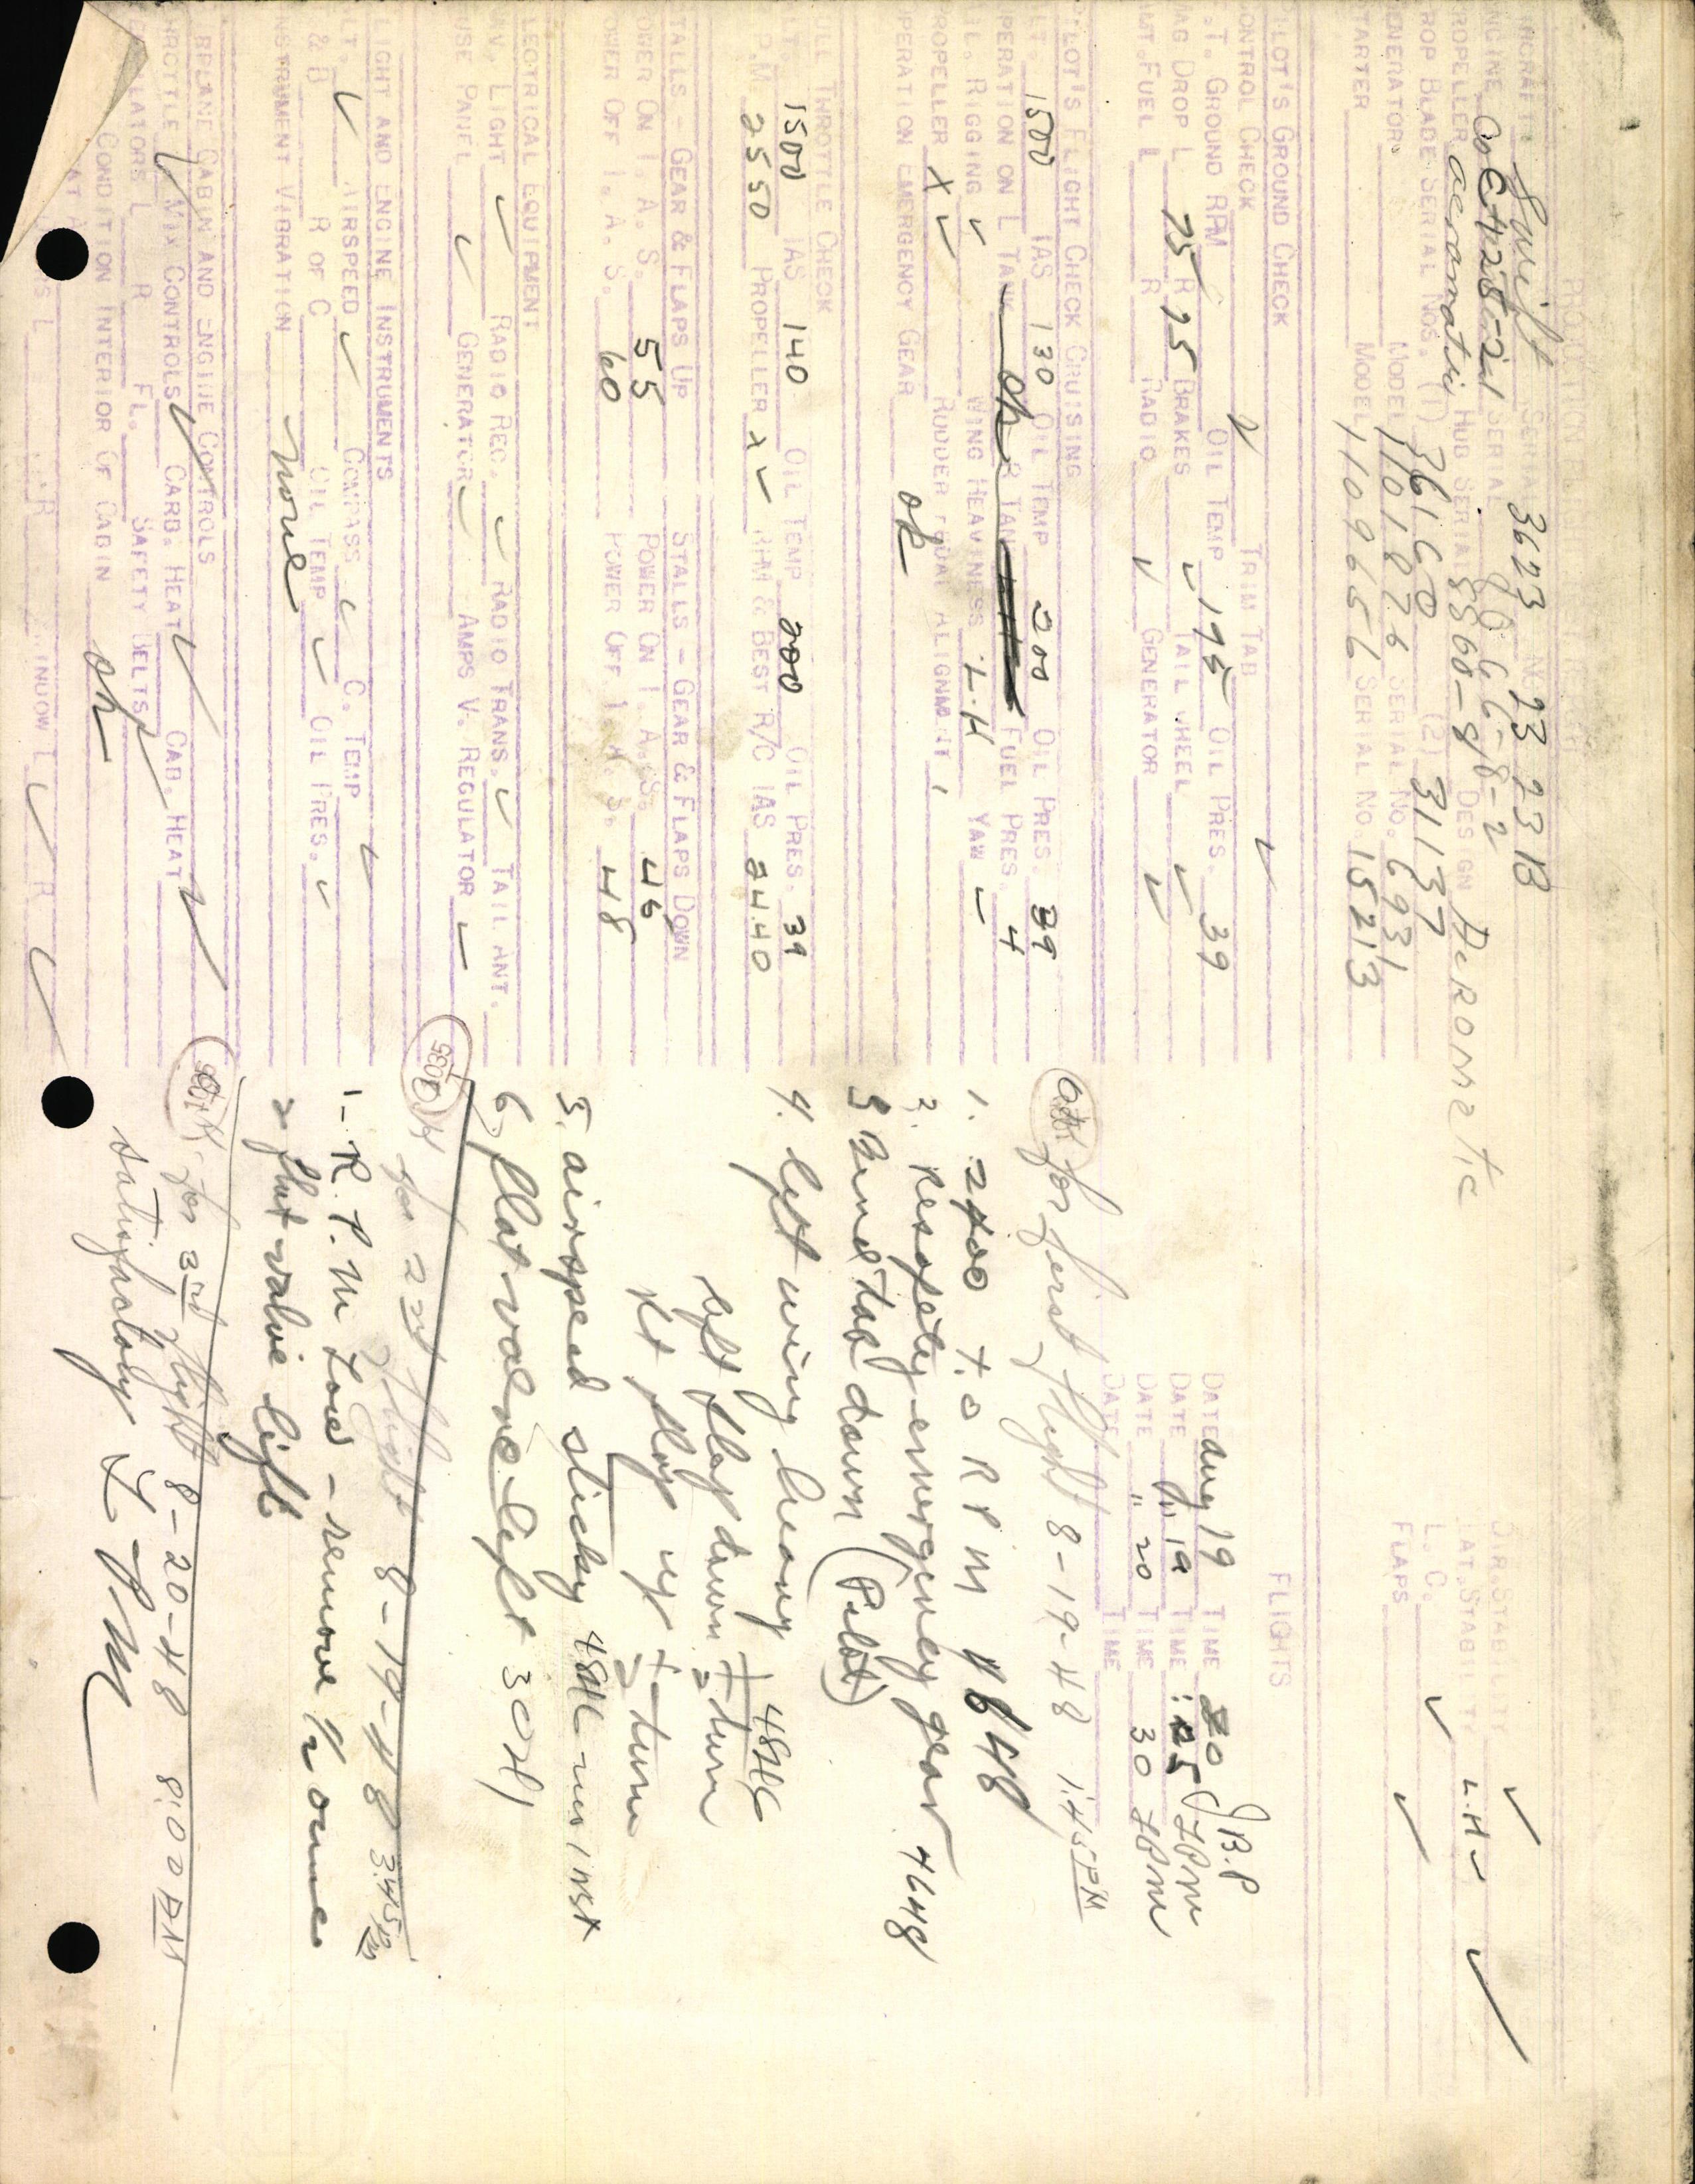 AIRCRAFT Swift SERIAL 3623 NO.
ENGINE SERIAL
PROPELLER aeromatic HUB SERIAL DESIGN Aeromatic
PROP BLADE SERIAL NOS. (1) (2) 31137
GENERATOR MODEL 1101876 SERIAL NO. 6931
STARTER MODEL 1109656 SERIAL NO. 15213
DIR. STABILITY ✓ ✓
LAT. STABILITY L.H ✓
L. C. ✓
FLAPS ✓
PILOT'S GROUND CHECK
CONTROL CHECK ✓ TRIM TAB ✓
GROUND RPM OIL TEMP ✓ 195 OIL PRES. 39
MAG DROP L 75 R 75 BRAKES ✓ TAIL WHEEL ✓
AMT. FUEL L R RADIO ✓ GENERATOR ✓
FLIGHTS
DATE Aug 19 TIME J.B.P
DATE " 19 TIME
DATE " 20 TIME 30
DATE TIME
PILOT'S FLIGHT CHECK CRUISING
ALT. 1500 IAS 130 OIL TEMP 200 OIL PRES. 39
OPERATION ON L TANK OK R TANK FUEL PRES. 4
RIGGING ✓ WING HEAVINESS L-H YAW ✓
PROPELLER X ✓ RUDDER PEDAL ALIGNMENT
OPERATION EMERGENCY GEAR OK
FULL THROTTLE CHECK
ALT. 1500 IAS 140 OIL TEMP 200 OIL PRES. 39
R.P.M 2550 PROPELLER X ✓ RPM & BEST R/C IAS 2440
STALLS - GEAR & FLAPS UP STALLS - GEAR & FLAPS DOWN
POWER ON I. A. S. 55 POWER ON I. A. S. 46
POWER OFF I. A. S. 60 POWER OFF I. A. S. 48
ELECTRICAL EQUIPMENT
NAV. LIGHT ✓ RADIO REC. ✓ RADIO TRANS. ✓ TAIL ANT.
FUSE PANEL ✓ GENERATOR ✓ AMPS V. REGULATOR ✓
FLIGHT AND ENGINE INSTRUMENTS
ALT. ✓ AIRSPEED ✓ COMPASS ✓ C. TEMP ✓
T & B R OF C OIL TEMP ✓ OIL PRES. ✓
INSTRUMENT VIBRATION none
AIRPLANE CABIN AND ENGINE CONTROLS
THROTTLE ✓ MIX CONTROLS ✓ CARB. HEAT ✓ CAB. HEAT ✓
L R FL. SAFETY BELTS ✓
CONDITION INTERIOR OF CABIN OK
L R WINDOW L ✓ R ✓
OK for first flight 8-19-48 1:45 PM
1. 2400 T.O RPM
2. Resafety emergency gear 4648
3 Bend tab down (Pilot)
4. left wing heavy
left flap down ½ turn
Rt flap up ½ turn
5. airspeed sticky
6, flat valve left 30H
OK for 2nd flight 8-19-48 3:45 PM
1- R.P.M Low - remove ½ ounce
2 flat valve left
OK for 3rd flight 8-20-48 8:00 AM
satisfactory